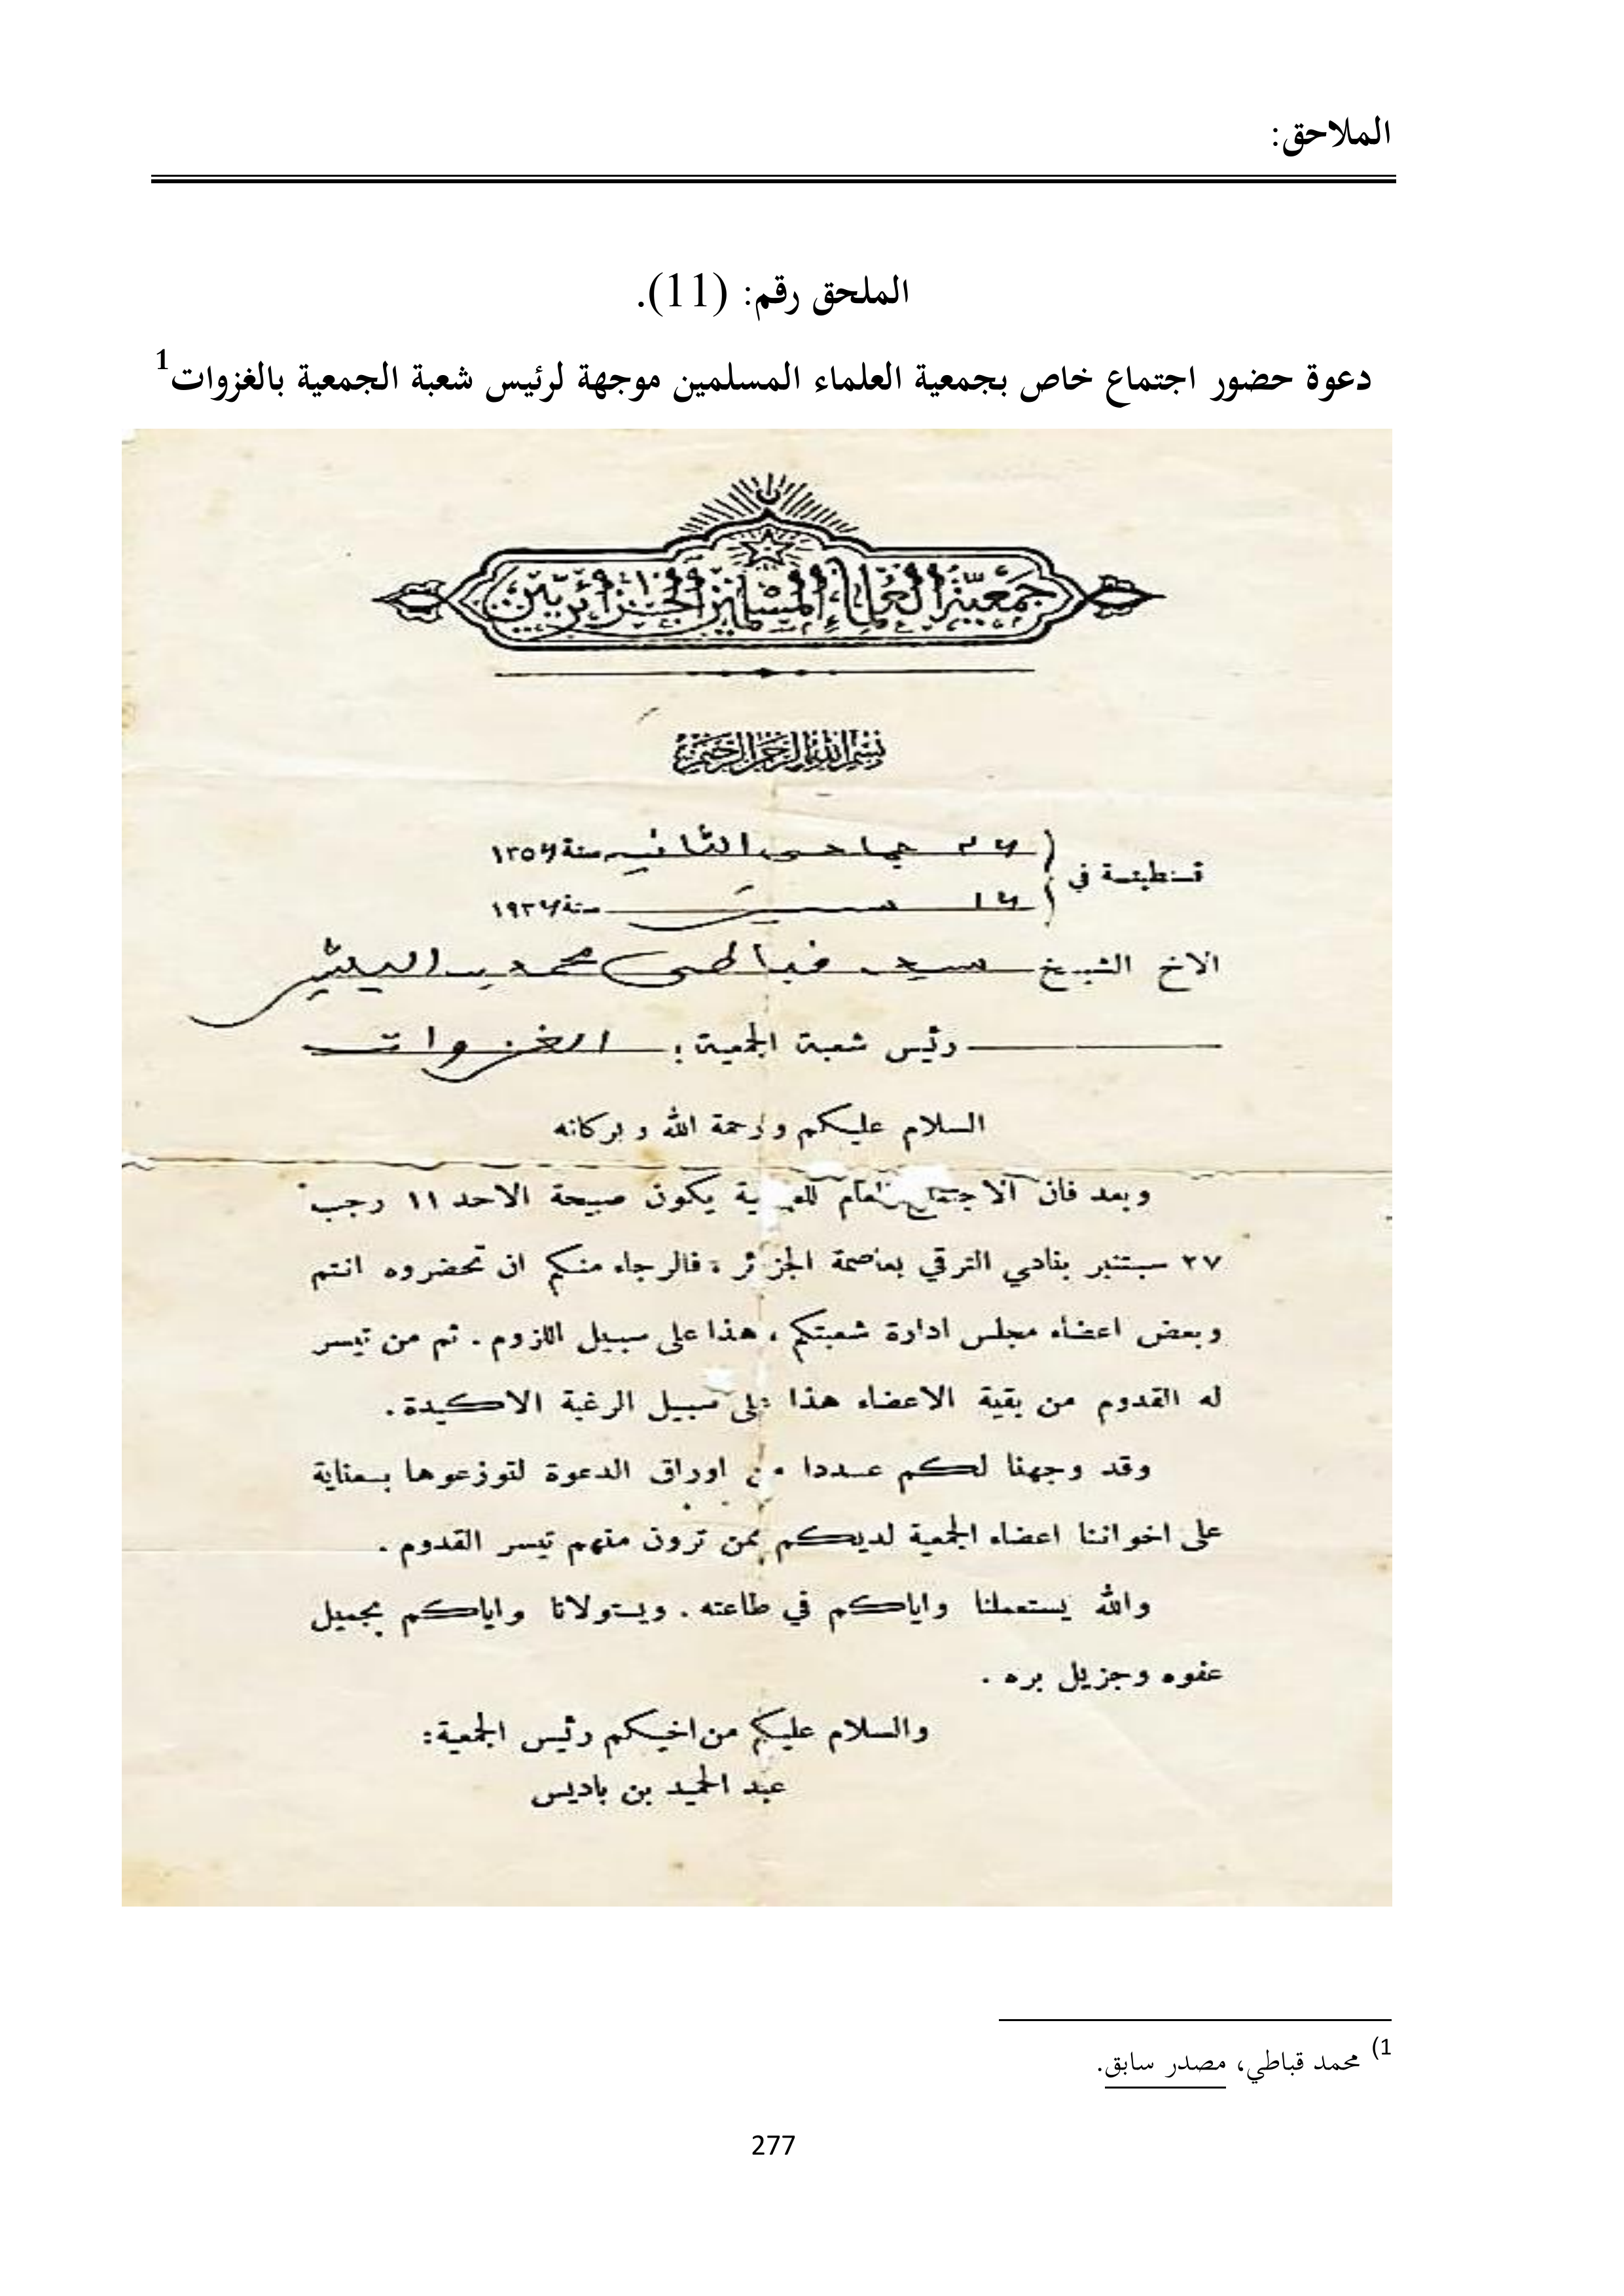 الملاحق:
الملحق رقم: (11).
دعوة حضور اجتماع خاص بجمعية العلماء المسلمين موجهة لرئيس شعبة الجمعية بالغزوات1
جمعية العلماء المسلمين الجزائريين
بسم الله الرحمن الرحيم
قسنطينة في
جمادى الثانية سنة ١٣٥
سنة ١٩٣
الاخ الشيخ سيد قباطي محمد البشير
رئيس شعبة الجمعية : الغزوات
السلام عليكم ورحمة الله وبركاته
وبعد فان الاجتماع العام يكون صبيحة الاحد ١١ رجب
٢٧ سبتنبر بنادي الترقي بعاصمة الجزائر ، فالرجاء منكم ان تحضروه انتم
وبعض اعضاء مجلس ادارة شعبتكم ، هذا على سبيل اللزوم . ثم من تيسر
له القدوم من بقية الاعضاء هذا على سبيل الرغبة الاكيدة .
وقد وجهنا لكم عددا من اوراق الدعوة لتوزعوها بعناية
على اخواننا اعضاء الجمعية لديكم ممن ترون منهم تيسر القدوم .
والله يستعملنا واياكم في طاعته . ويتولانا واياكم بجميل
عفوه وجزيل بره .
والسلام عليكم من اخيكم رئيس الجمعية:
عبد الحميد بن باديس
1) محمد قباطي، مصدر سابق.
277